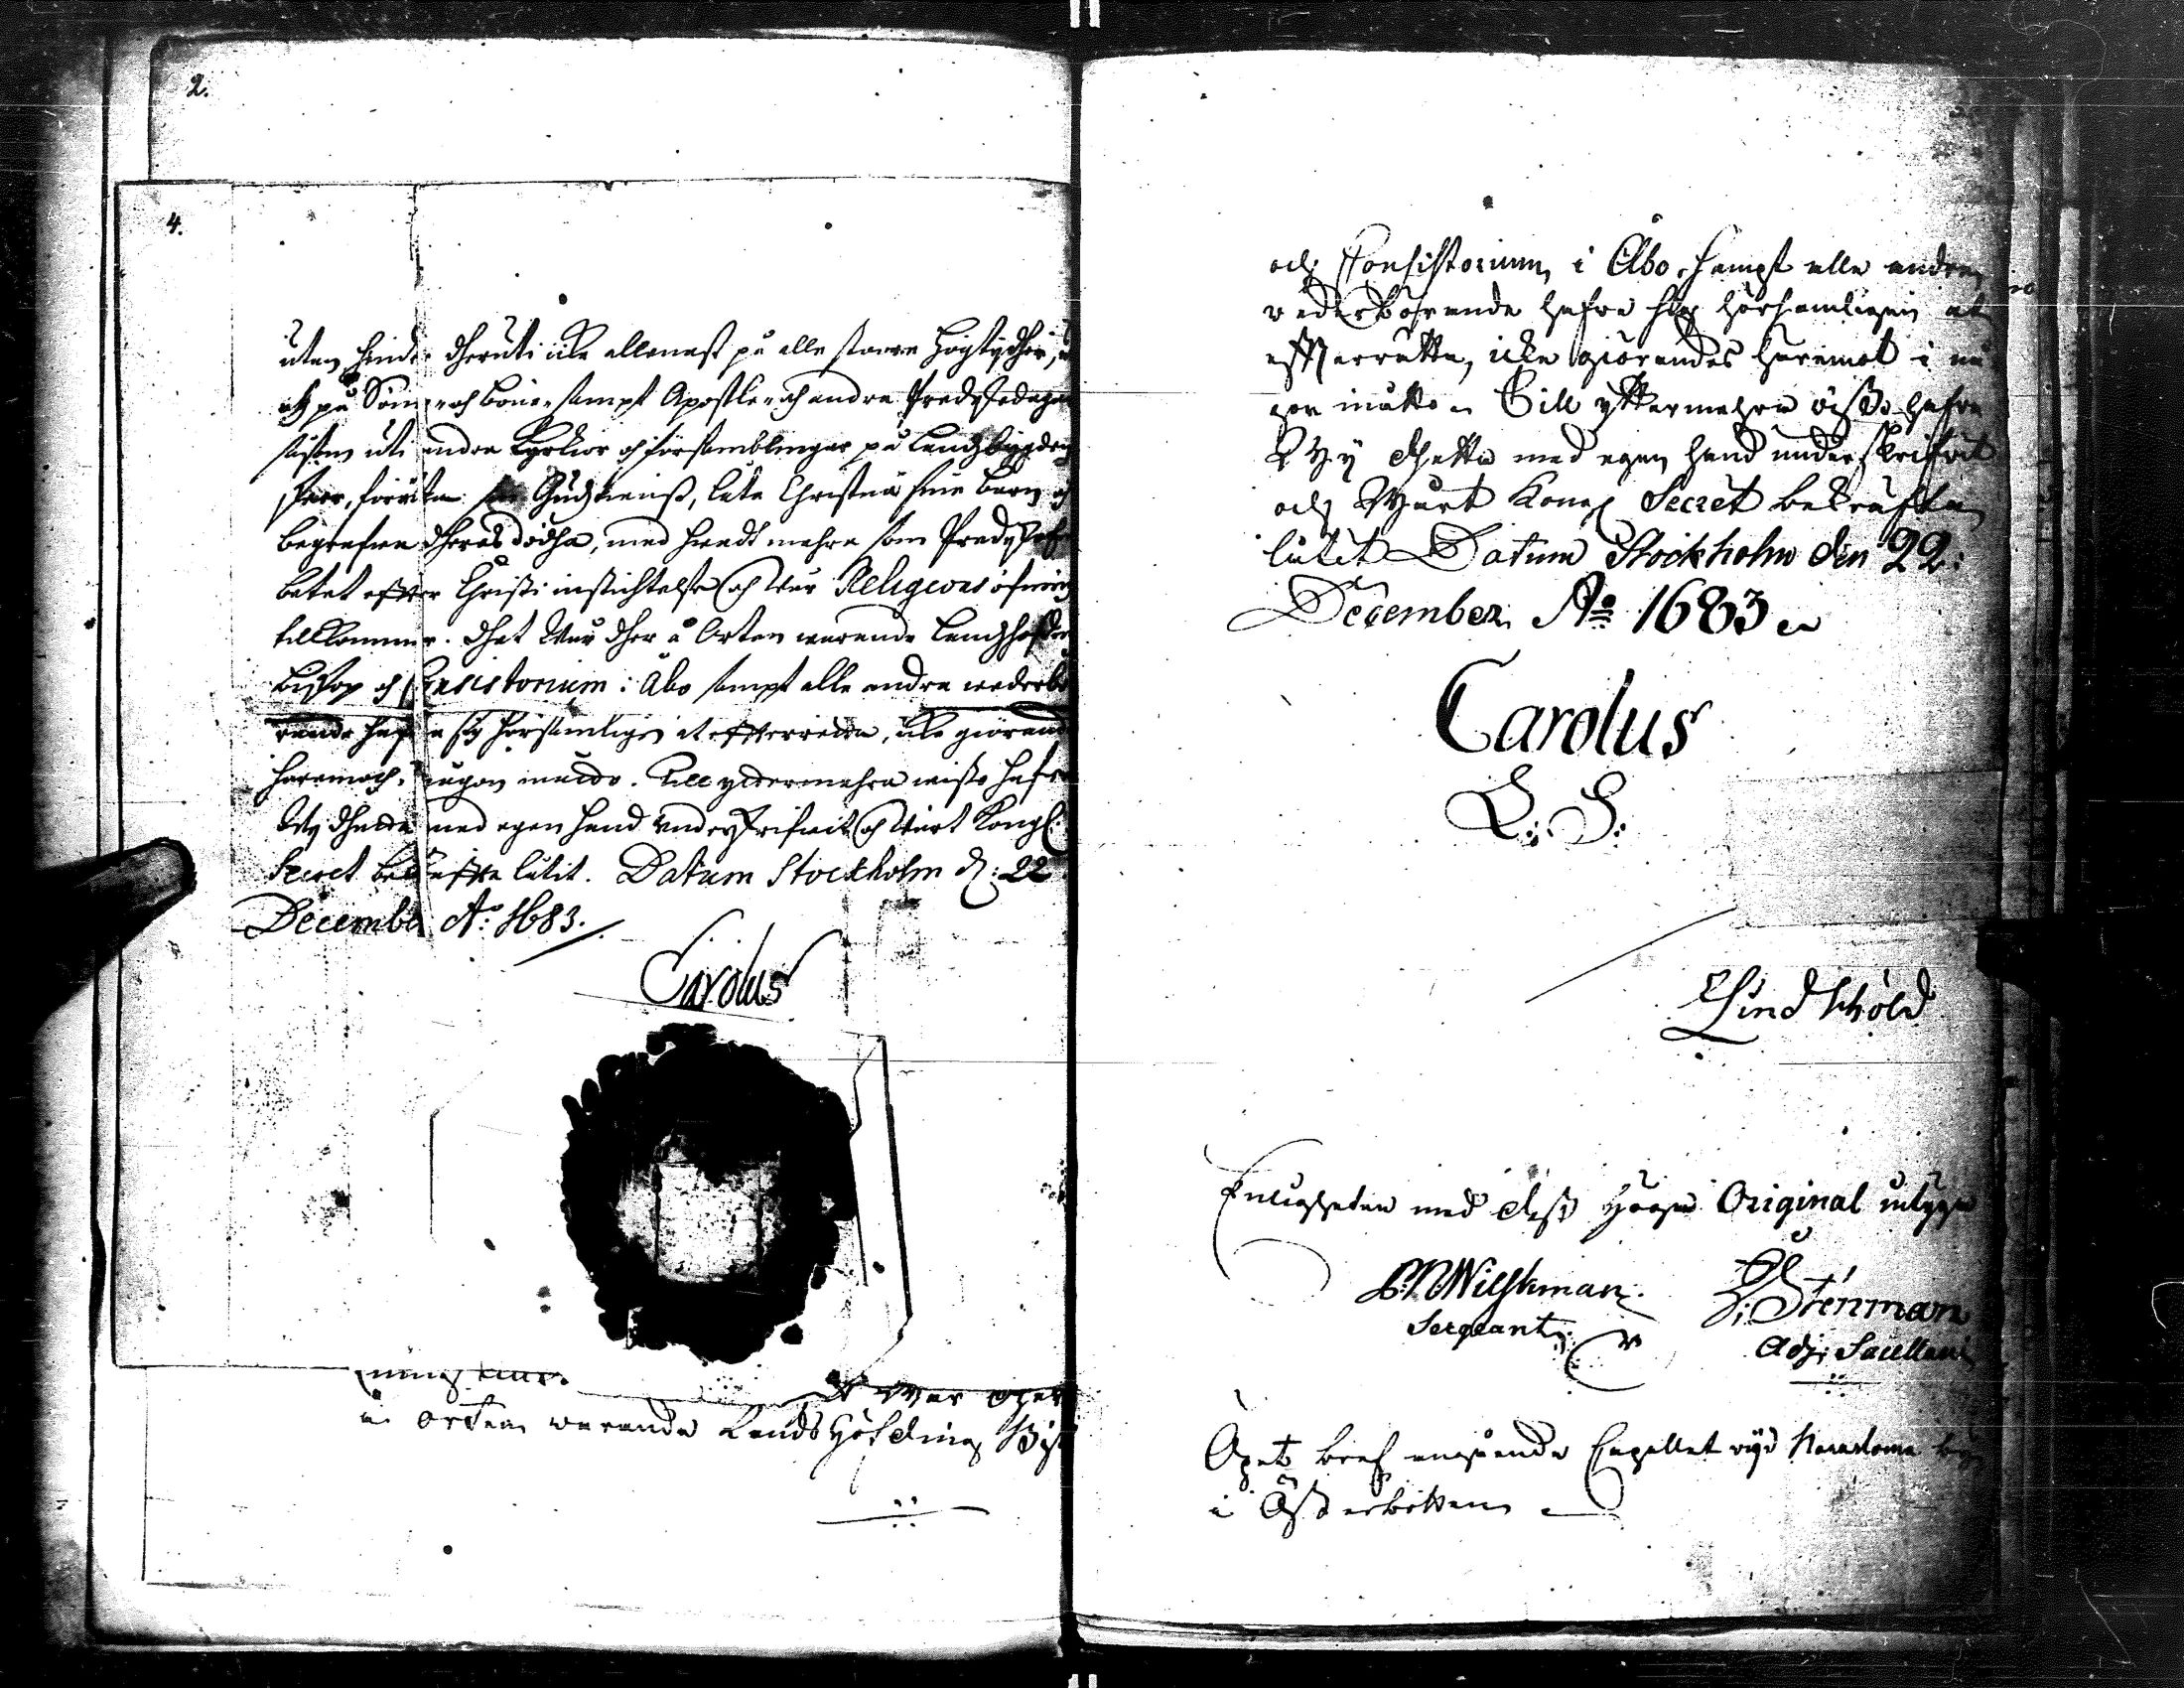 2.
4.
uthan hinder dheruti icke allenast på alla stoora Högtydher, u
och på Sönne- och böne- sampt Apostle- och andra Predykedagar
såsom uti andra Kyrkior och församblingar på Landzbygden
skeer, förrätta sin Gudztienst, låta Christna sine barn och
begrafwa dheras dödha, med hwadt mehra som Predyko
betet effter Christi instichtelse och wår Religions öfning
tillkommer. Dhet Wår dher å Orten warande Landzhöfdin
Biskop och Consistorium i Åbo sampt alle andra wederbö
rande hafwa sig hörsamligen at effterrätta, icke giörand
häremoth i någon måtto. Till yttermehra wisso hafwa
Wy dhetta med egen hand underskrifwit och Wårt Kongl:
Secret bekräffta låtit. Datum Stockholm d: 22
December A:o 1683.
Carolus
Wår
å orten warande Lands Höfding Bis
och Consistorium i Åbo, sampt alla andra
wederbörande hafwa sig hörsamligen at
effterrätta, icke giörandes häremot i nå
gon måtto. Till yttermehra wisso hafwa
Wy dhetta med egen hand underskrifwit
och Wårt Kongl Secret bekräffta
låtit Datum Stockholm den 22:
December A:o 1683
Carolus
L: S:
Lindschöld
Enligheten med dess Original intyga
Wilskman.
Sergeant
Stenman
Adj: Sacellani
Öpet bref angående Capellet wijd
i Österbotten